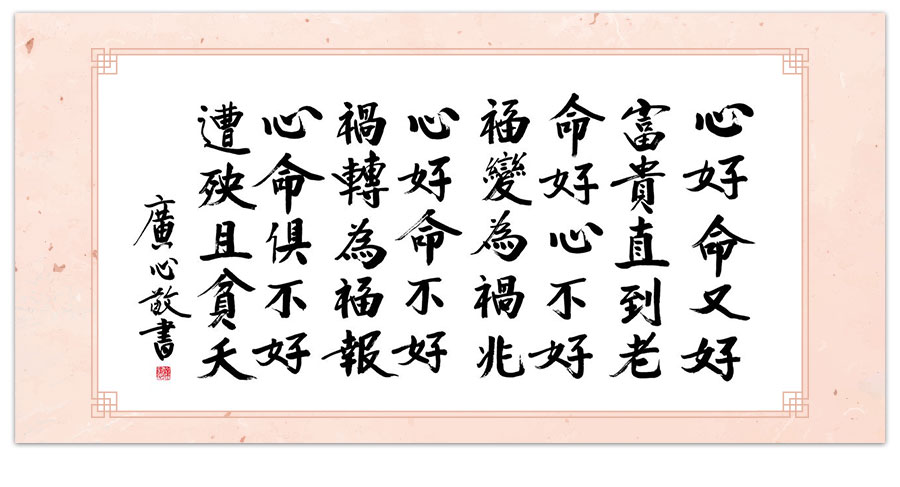 心好命又好
富貴直到老
命好心不好
福變為禍兆
心好命不好
禍轉為福報
心命俱不好
遭殃且貧夭
廣心敬書